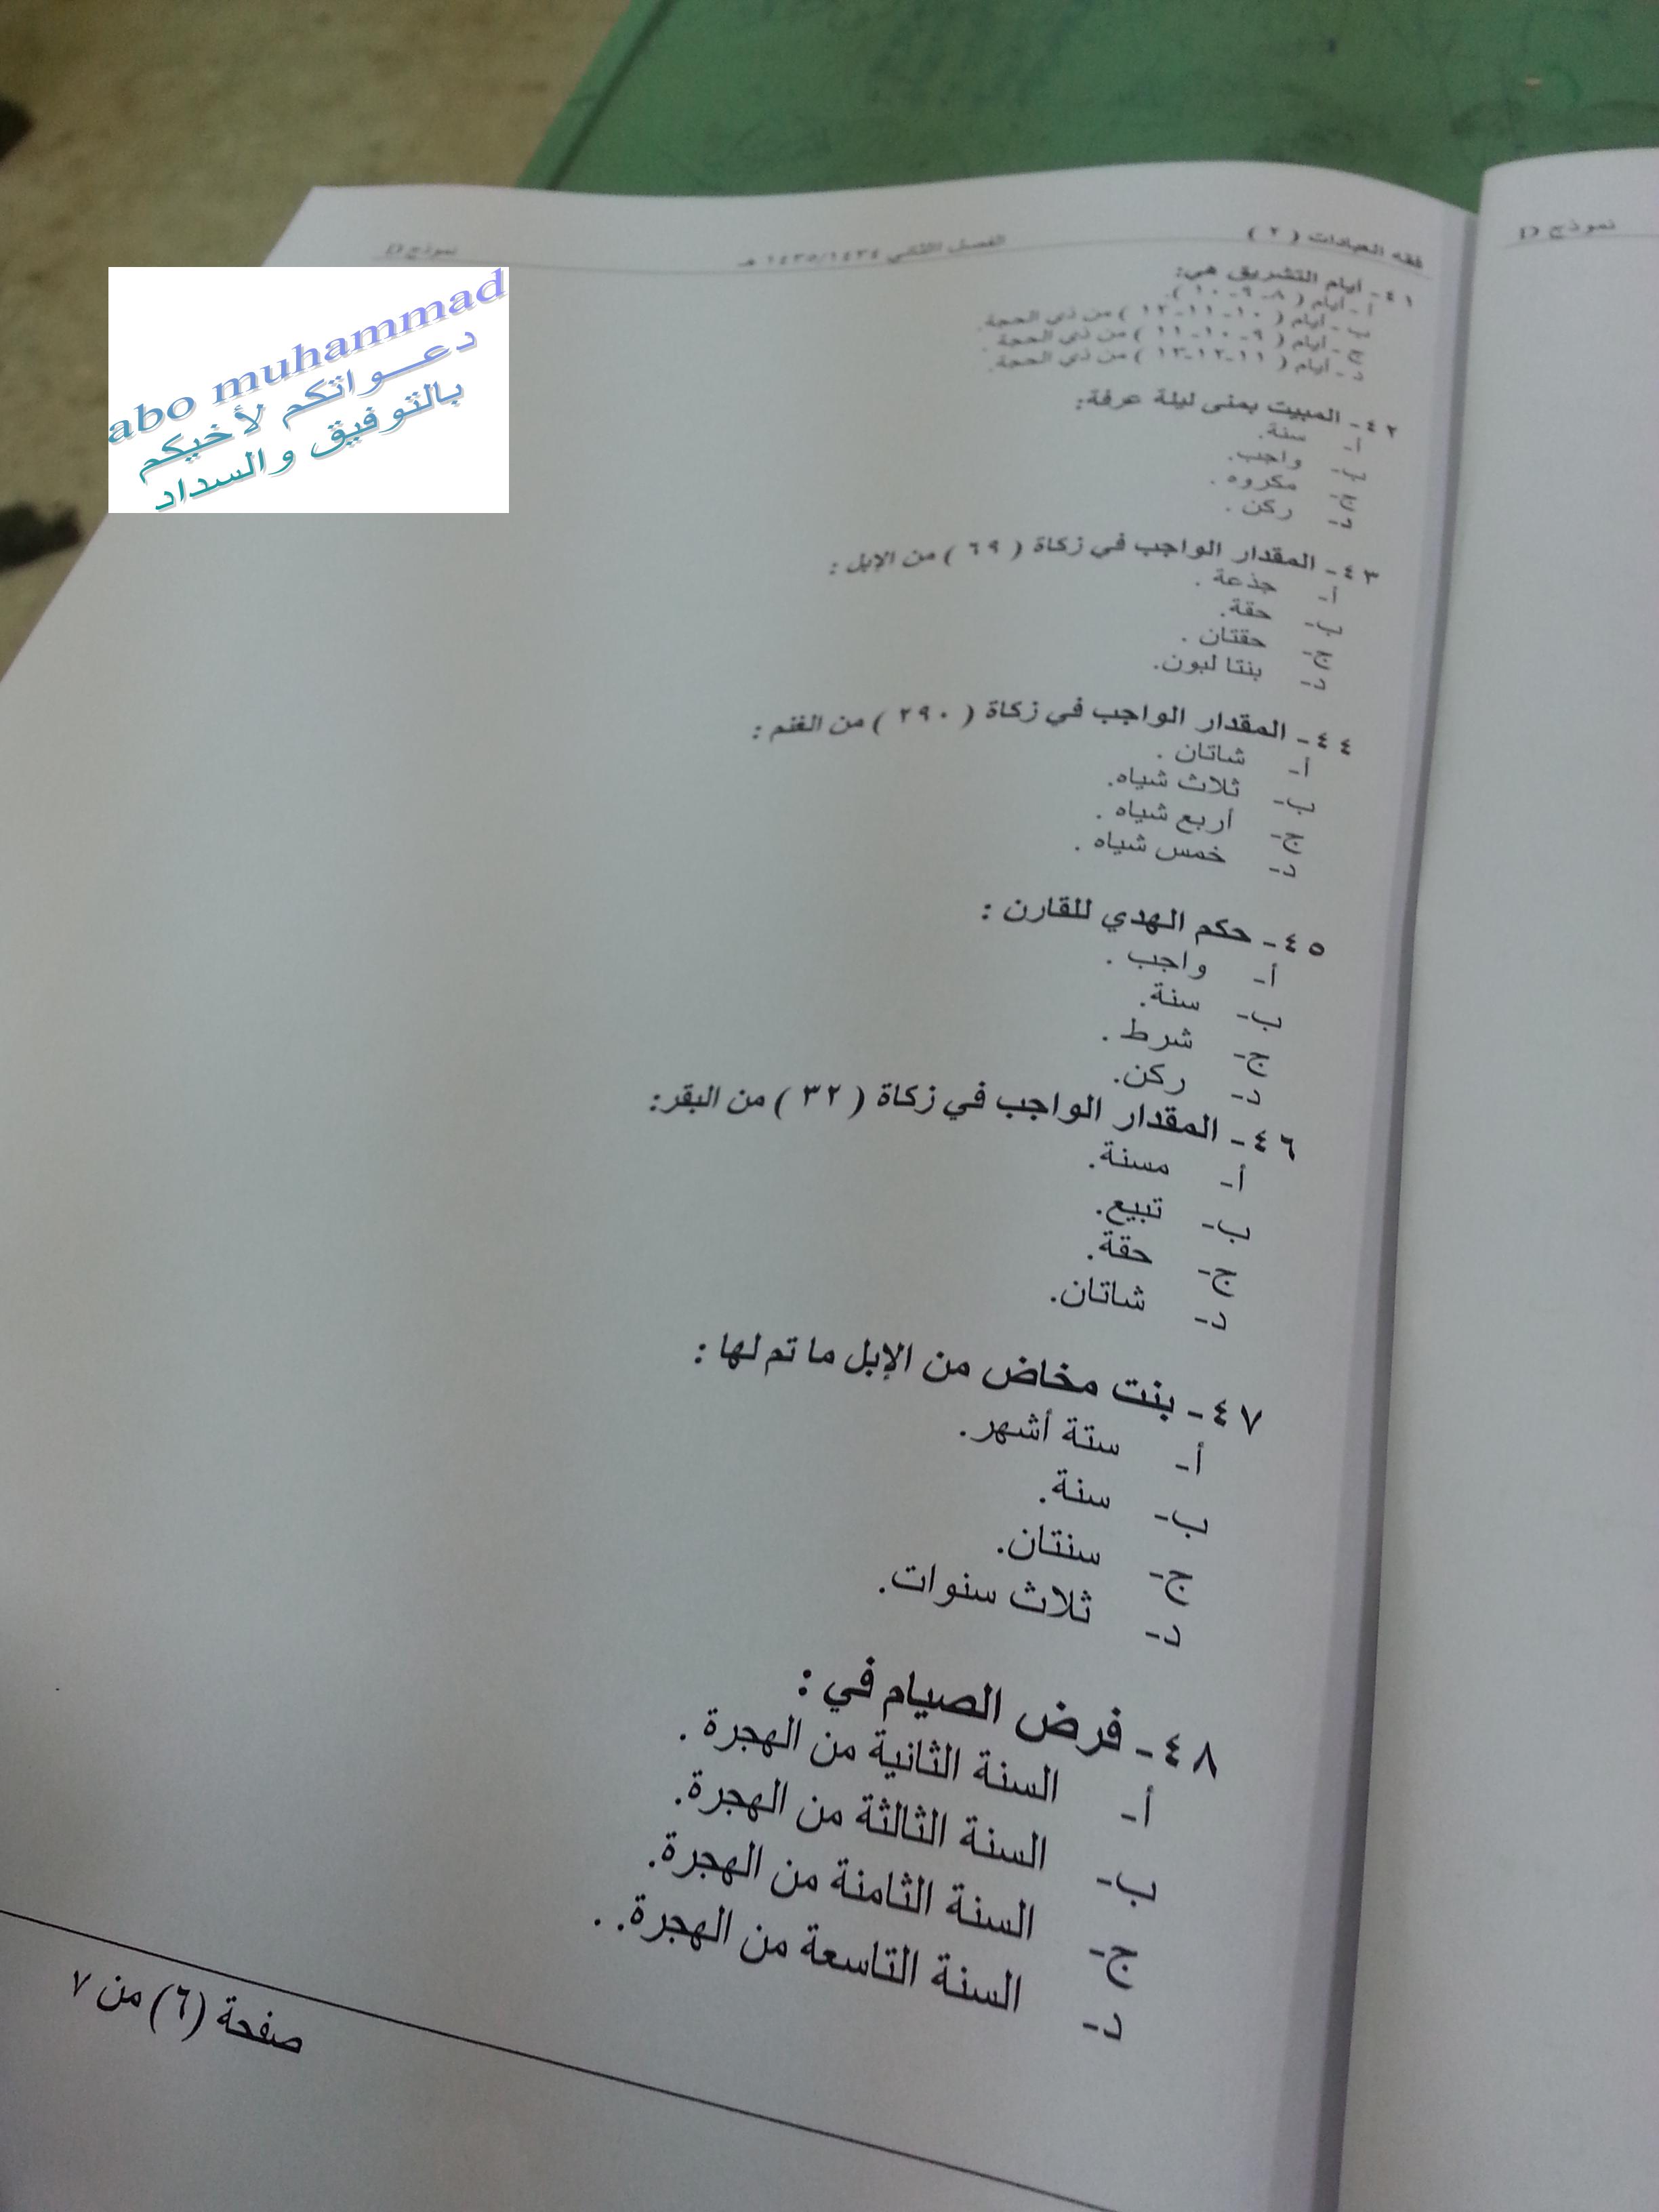 فقه العبادات ( ٢ ) الفصل الثاني ١٤٣٥/١٤٣٤ هـ نموذج D
٤١ - أيام التشريق هي:
أ - أيام ( ٨-٩-١٠ ).
ب - أيام ( ١٠-١١-١٢ ) من ذي الحجة.
ج - أيام ( ٩-١٠-١١ ) من ذي الحجة.
د - أيام ( ١١-١٢-١٣ ) من ذي الحجة.
٤٢ - المبيت بمنى ليلة عرفة:
أ- سنة.
ب- واجب.
ج- مكروه .
د- ركن .
٤٣ - المقدار الواجب في زكاة ( ٦٩ ) من الإبل :
أ- جذعة .
ب- حقة.
ج- حقتان .
د- بنتا لبون.
٤٤ - المقدار الواجب في زكاة ( ٢٩٠ ) من الغنم :
أ- شاتان .
ب- ثلاث شياه.
ج- أربع شياه .
د- خمس شياه .
٤٥ - حكم الهدي للقارن :
أ- واجب .
ب- سنة.
ج- شرط .
د- ركن.
٤٦ - المقدار الواجب في زكاة ( ٣٢ ) من البقر:
أ- مسنة.
ب- تبيع.
ج- حقة.
د- شاتان.
٤٧ - بنت مخاض من الإبل ما تم لها :
أ- ستة أشهر.
ب- سنة.
ج- سنتان.
د- ثلاث سنوات.
٤٨ - فرض الصيام في :
أ- السنة الثانية من الهجرة .
ب- السنة الثالثة من الهجرة.
ج- السنة الثامنة من الهجرة.
د- السنة التاسعة من الهجرة. .
صفحة (٦) من ٧
نموذج D
abo muhammad
دعـــواتكم لأخيكم
بالتوفيق والسداد